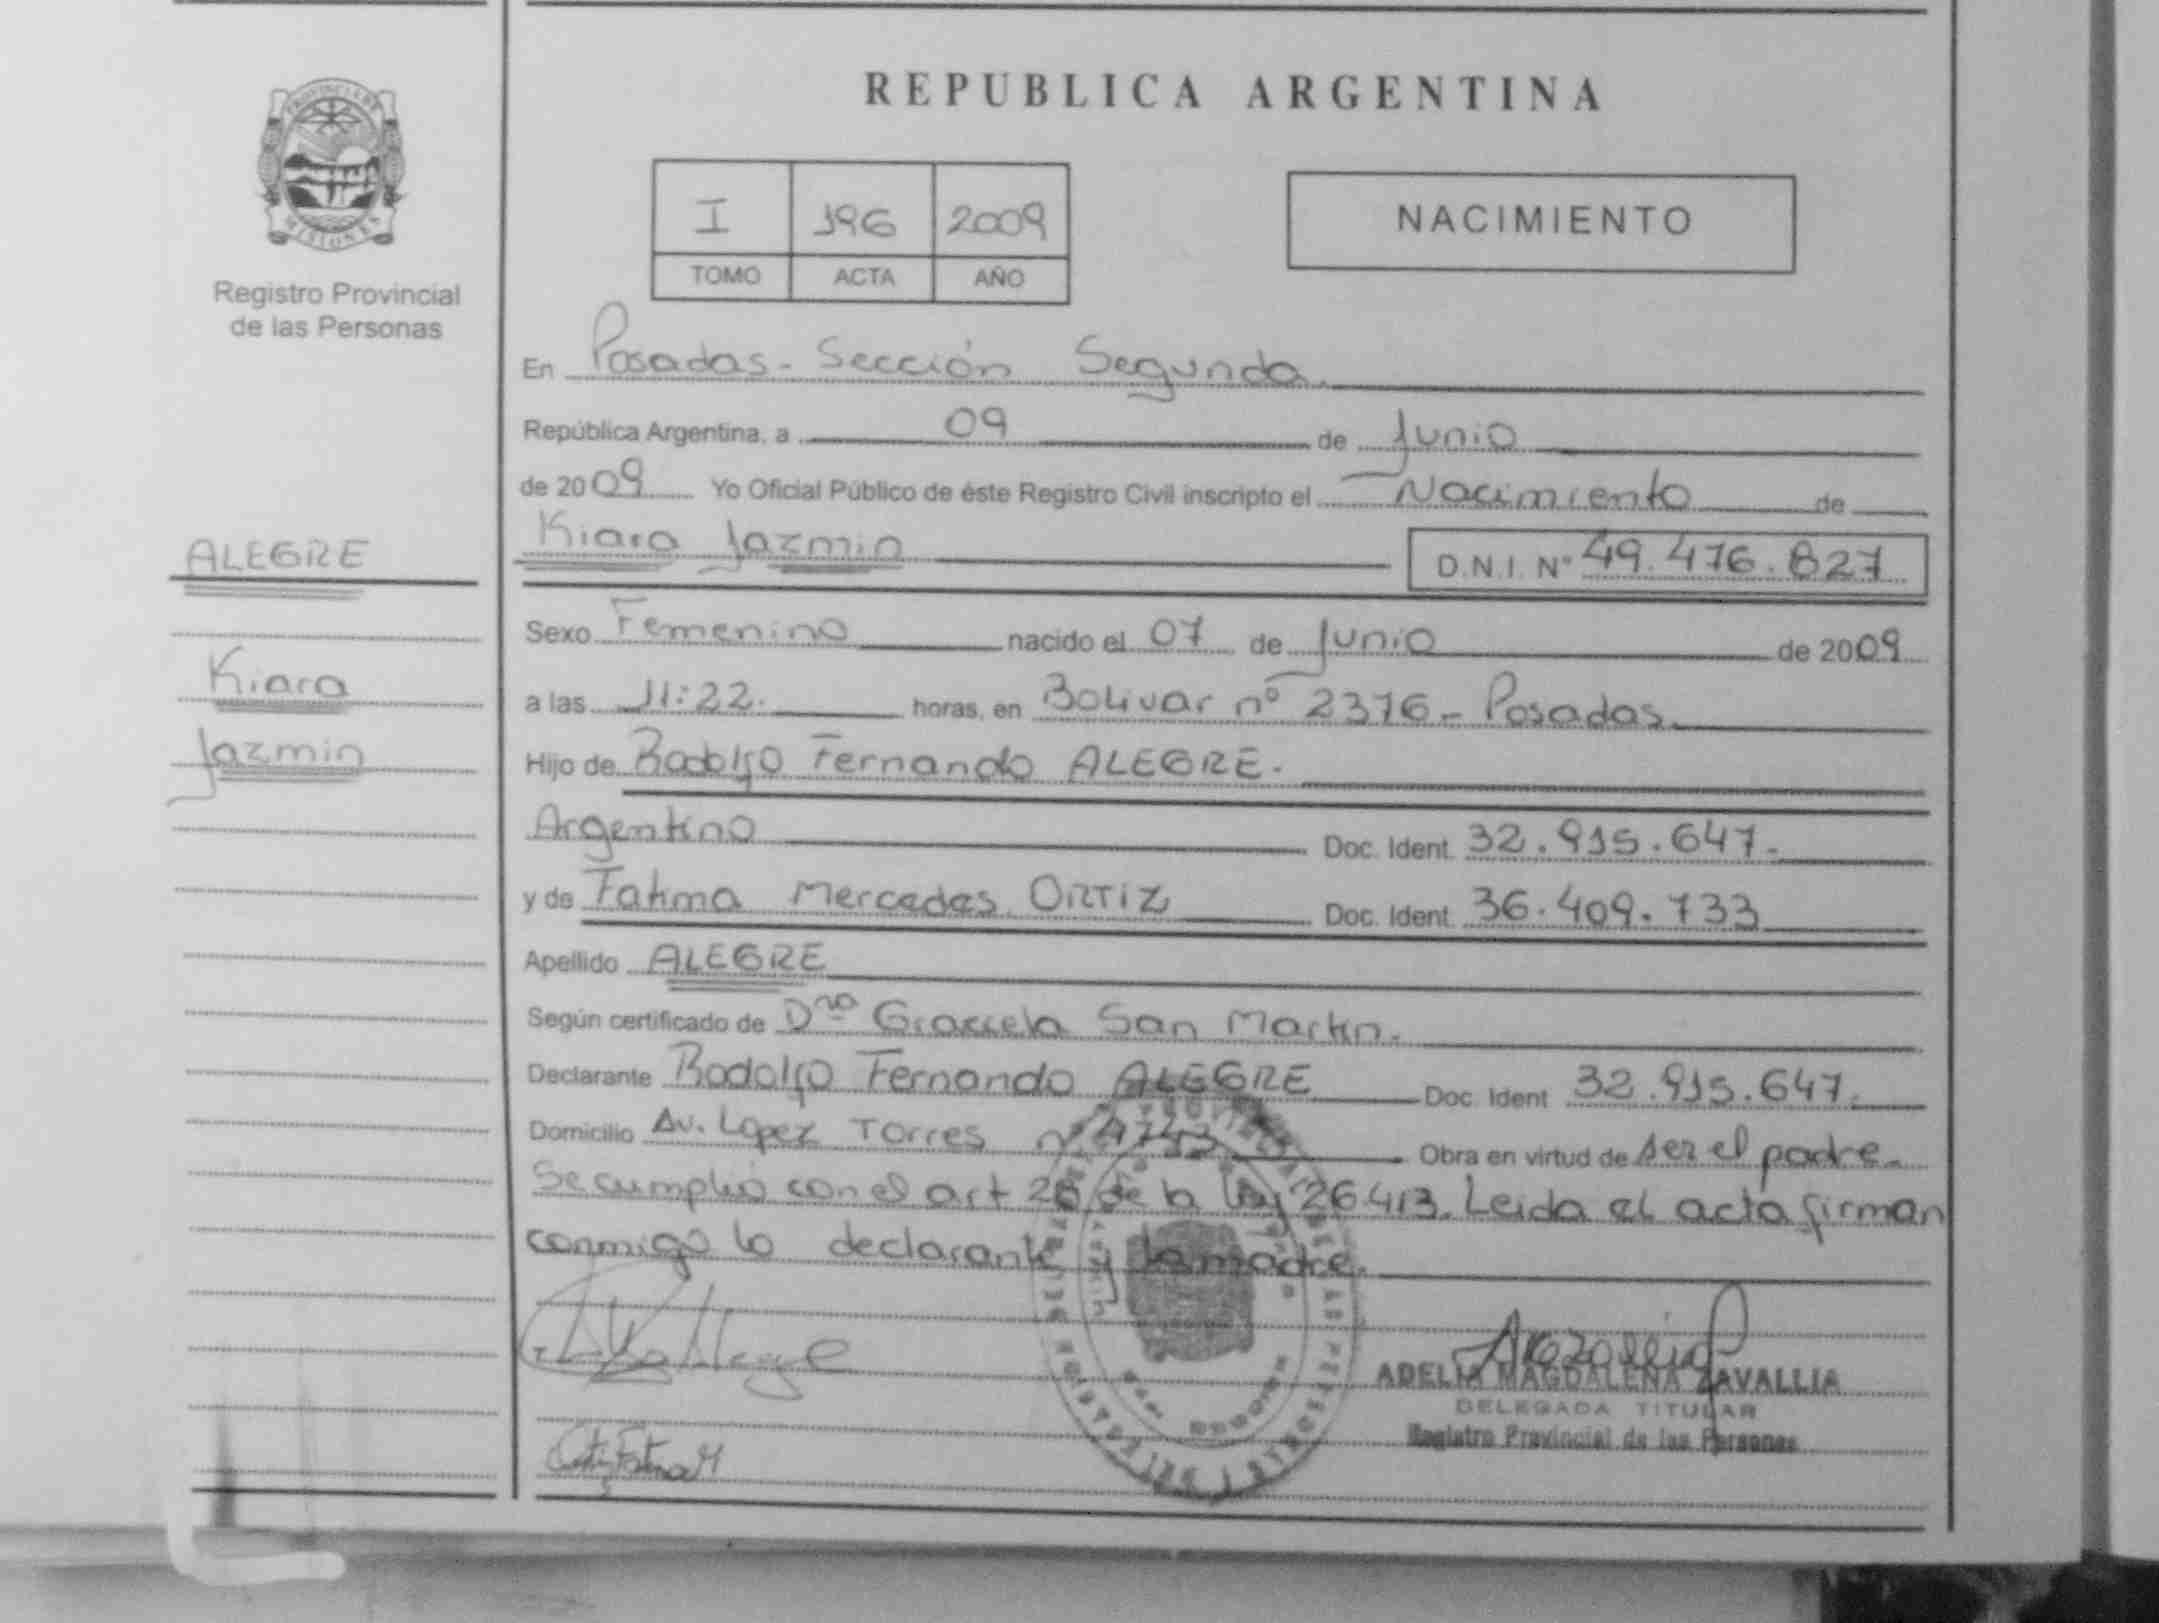 REPUBLICA ARGENTINA
PROVINCIA DE
MISIONES
Registro Provincial
de las Personas
I 196 2009
TOMO ACTA AÑO
NACIMIENTO
En Posadas - Sección Segunda.
República Argentina, a 09 de Junio
de 2009 Yo Oficial Público de éste Registro Civil inscripto el Nacimiento de
Kiara Jazmin D.N.I. Nº 49.476.827
ALEGRE
Kiara
Jazmin
Sexo Femenino nacido el 07 de Junio de 2009
a las 11:22. horas, en Bolivar nº 2376 - Posadas.
Hijo de Rodolfo Fernando ALEGRE.
Argentino Doc. Ident. 32.915.647.
y de Fatima Mercedes ORTIZ Doc. Ident. 36.409.733
Apellido ALEGRE
Según certificado de Dra Graciela San Martin.
Declarante Rodolfo Fernando ALEGRE Doc. Ident 32.915.647.
Domicilio Av. Lopez Torres nº Obra en virtud de ser el padre.
Se cumplió con el art 26 de la ley 26.413. Leida el acta firman
conmigo lo declarante y la madre.
ADELIA MAGDALENA ZAVALLIA
DELEGADA TITULAR
Registro Provincial de las Personas